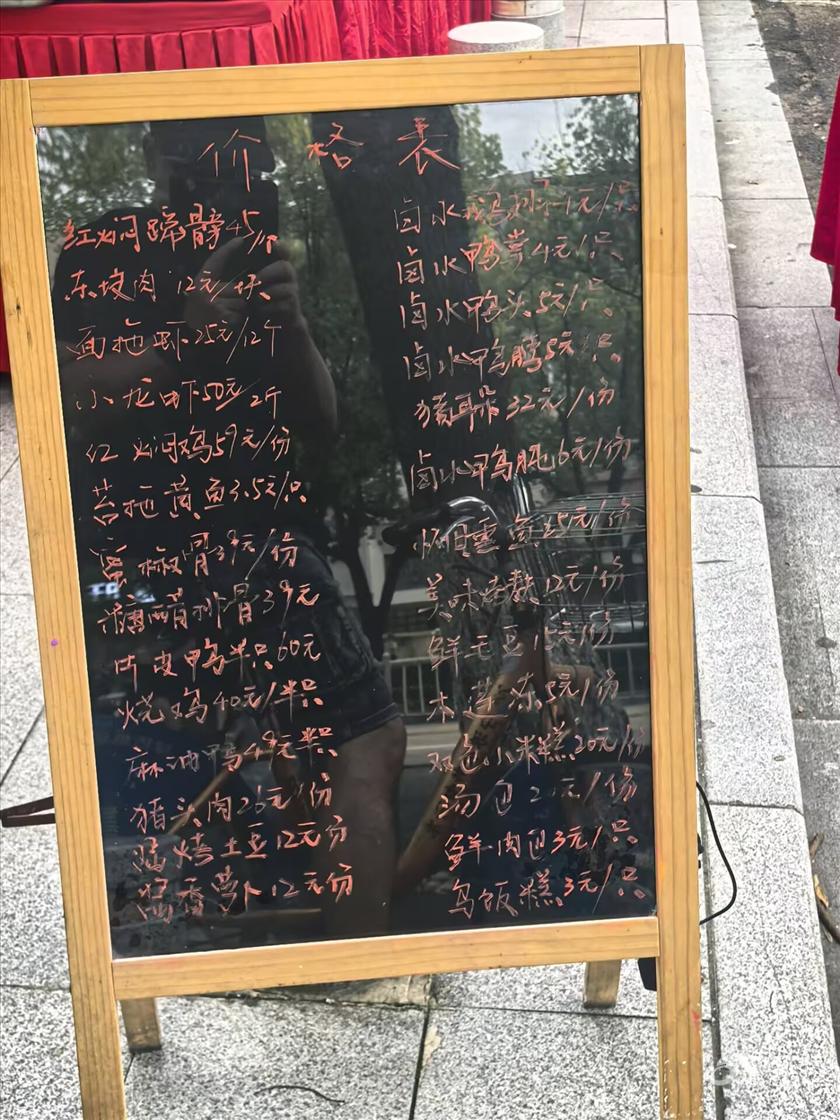 价格表
红焖蹄髈45/个
东坡肉12元/块
面拖虾25元/12个
小龙虾50元/2斤
红焖鸡59元/份
苔拖黄鱼3.5元/只
椒骨39元/份
排骨39元
片皮鸭半只60元
烧鸡40元/半只
麻油鸭48元半只
猪头肉26元/份
烤土豆12元份
酱香萝卜12元份
卤水鸡 1元/只
卤水鸭掌4元/只
卤水鸭头5元/只
卤水鸭 5元/只
猪耳朵32元/份
卤水鸭肫6元/份
鱼 元/份
美味烤麸12元/份
鲜毛豆15元/份
木莲冻5元/份
双色小米糕20元/份
汤包2元/份
鲜肉包3元/只
乌饭糕3元/只